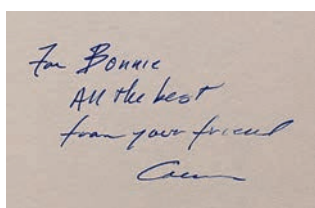 For Bonnie
All the best
from your friend